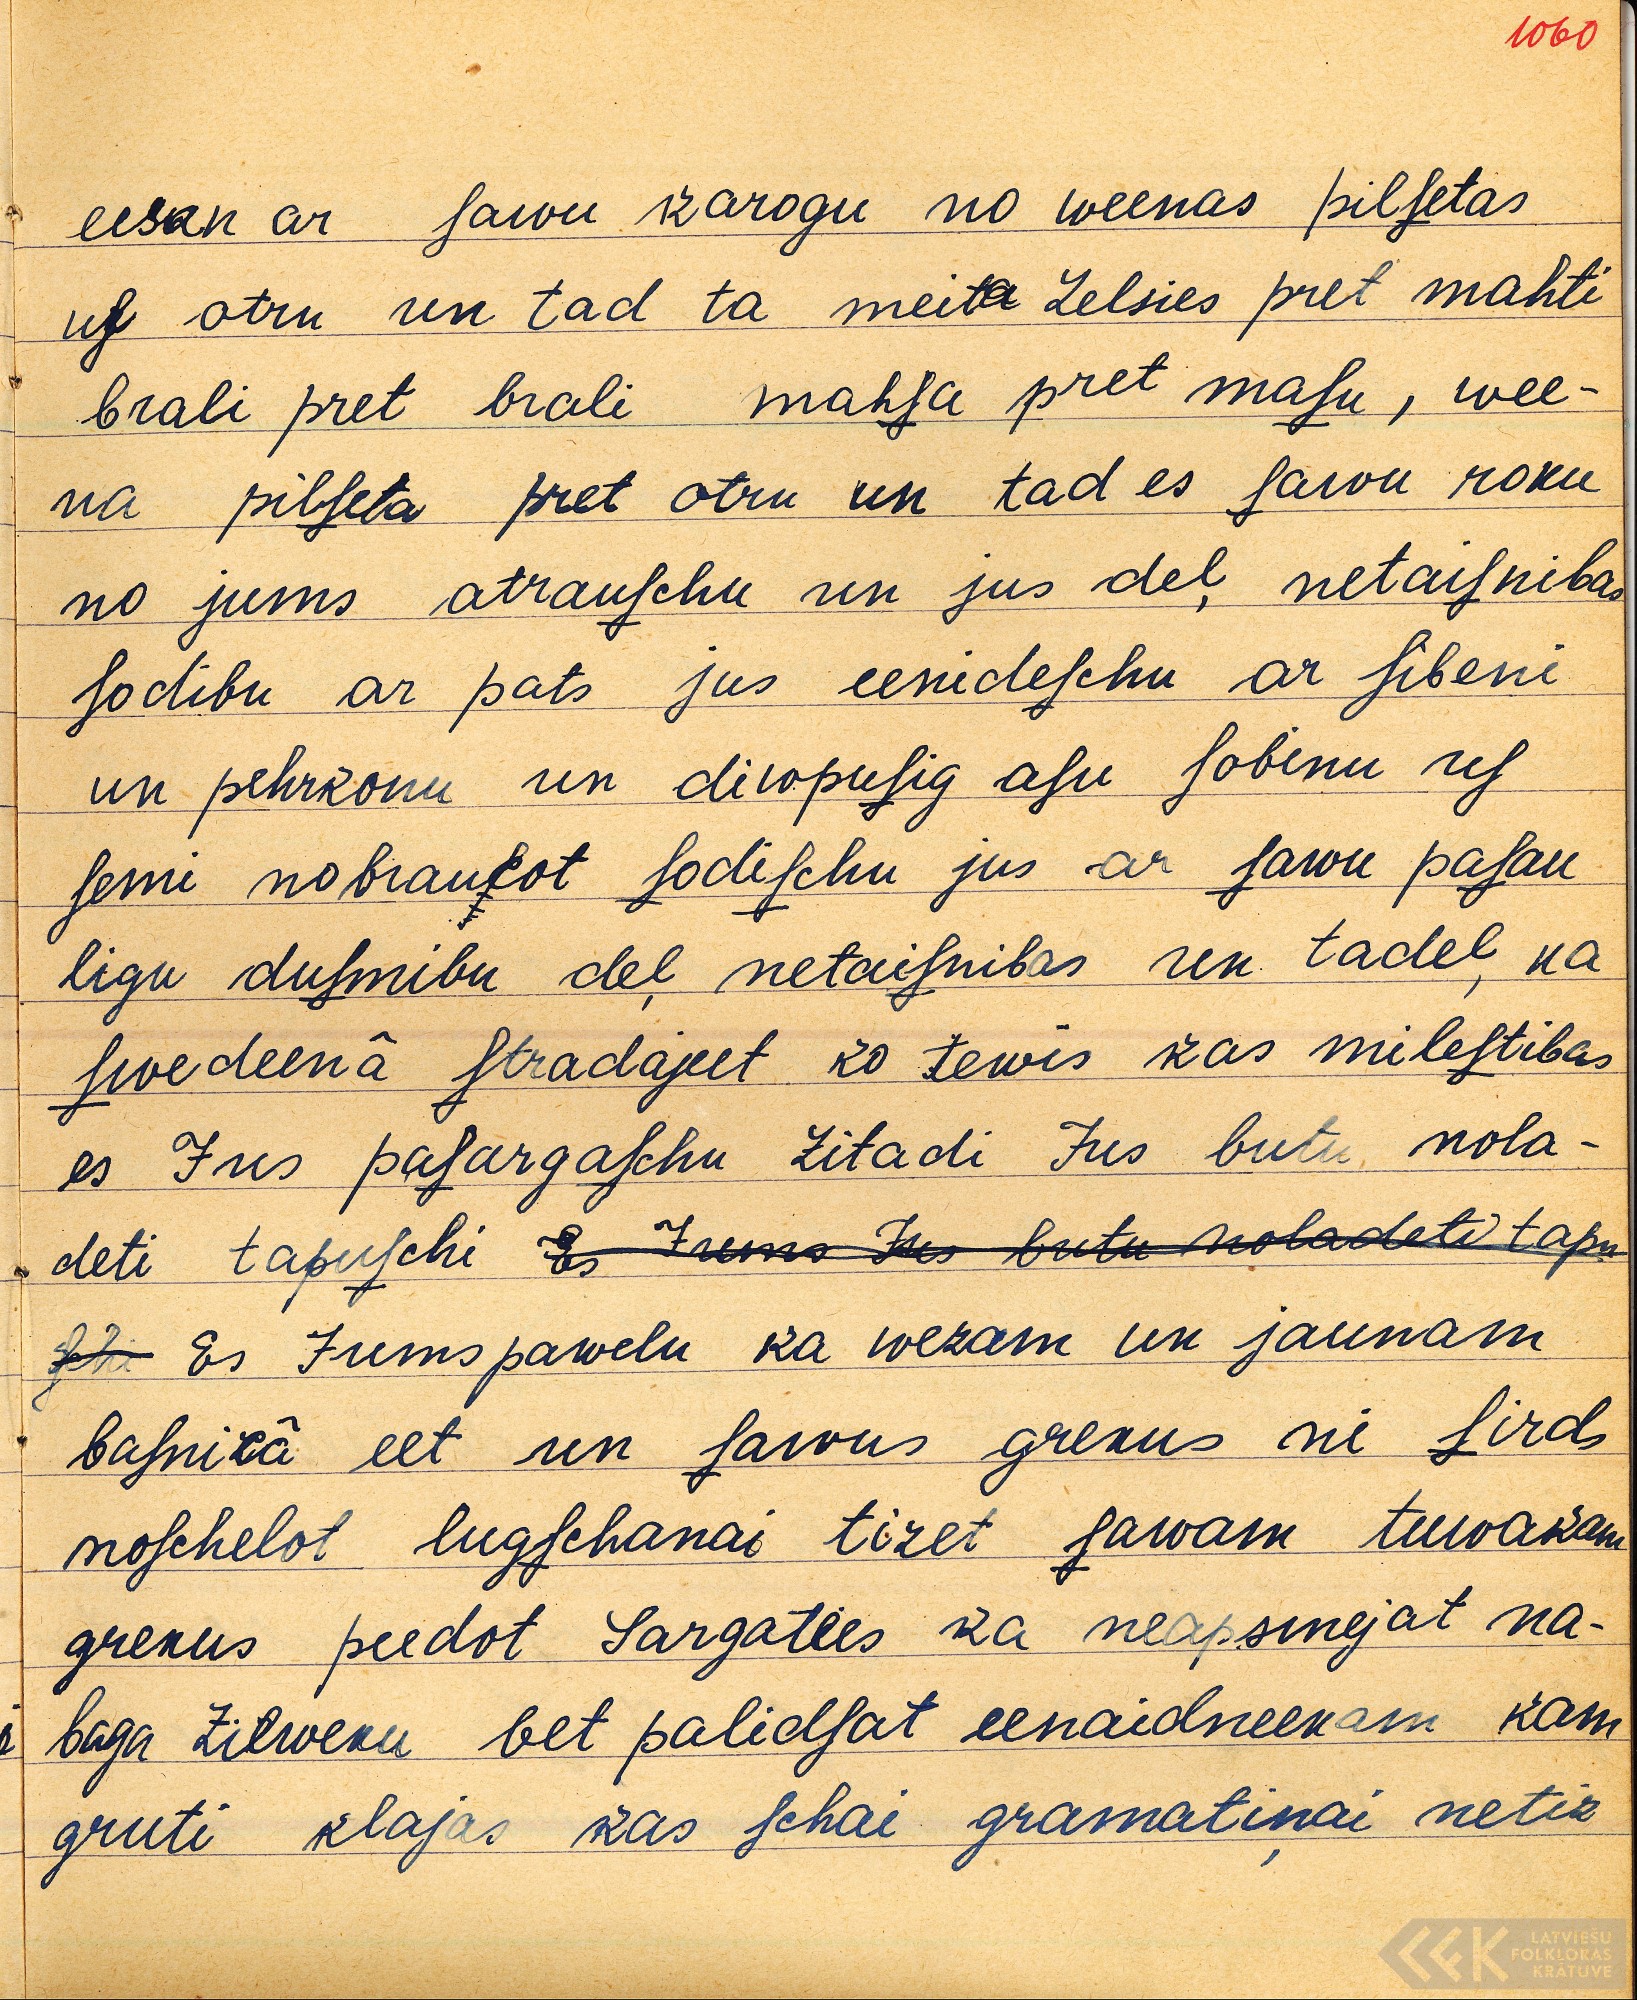 1060
ar ſawu karogu no weenas pilſetas
uſ otru un tad ta meita zelsies pret mahti
brali pret brali mahſa pret maſu, wee-
na pilſeta pret otru un tad es ſawu roku
no jums atrauſchu un jus deļ netaiſnibas
ſodibu ar pats jus eenideſchu ar ſibeni
un pehrkonu un diwpuſig aſu ſobenu uſ
ſemi nobrauzot ſodiſchu jus ar ſawu paſau
ligu duſmibu deļ netaiſnibas un tadeļ ka
ſwedeenâ ſtradajeet ko tewis kas mileſtibas
es Jus paſargaſchu zitadi Jus butu nola-
deti tapuſchi Es Jums Jus butu noladeti tapu
ſchi Es Jums pawelu ka wezam un jaunam
baſnizâ eet un ſawus grekus ni ſirds
noſchelot lugſchanai tizet ſawam tuwakam
grekus peedot Sargaties ka neapsmejat na-
baga zilweku bet palidſat eenaidneekam kam
gruti klajas kas ſchai gramatiņai netiz
LATVIEŠU
FOLKLORAS
KRĀTUVE